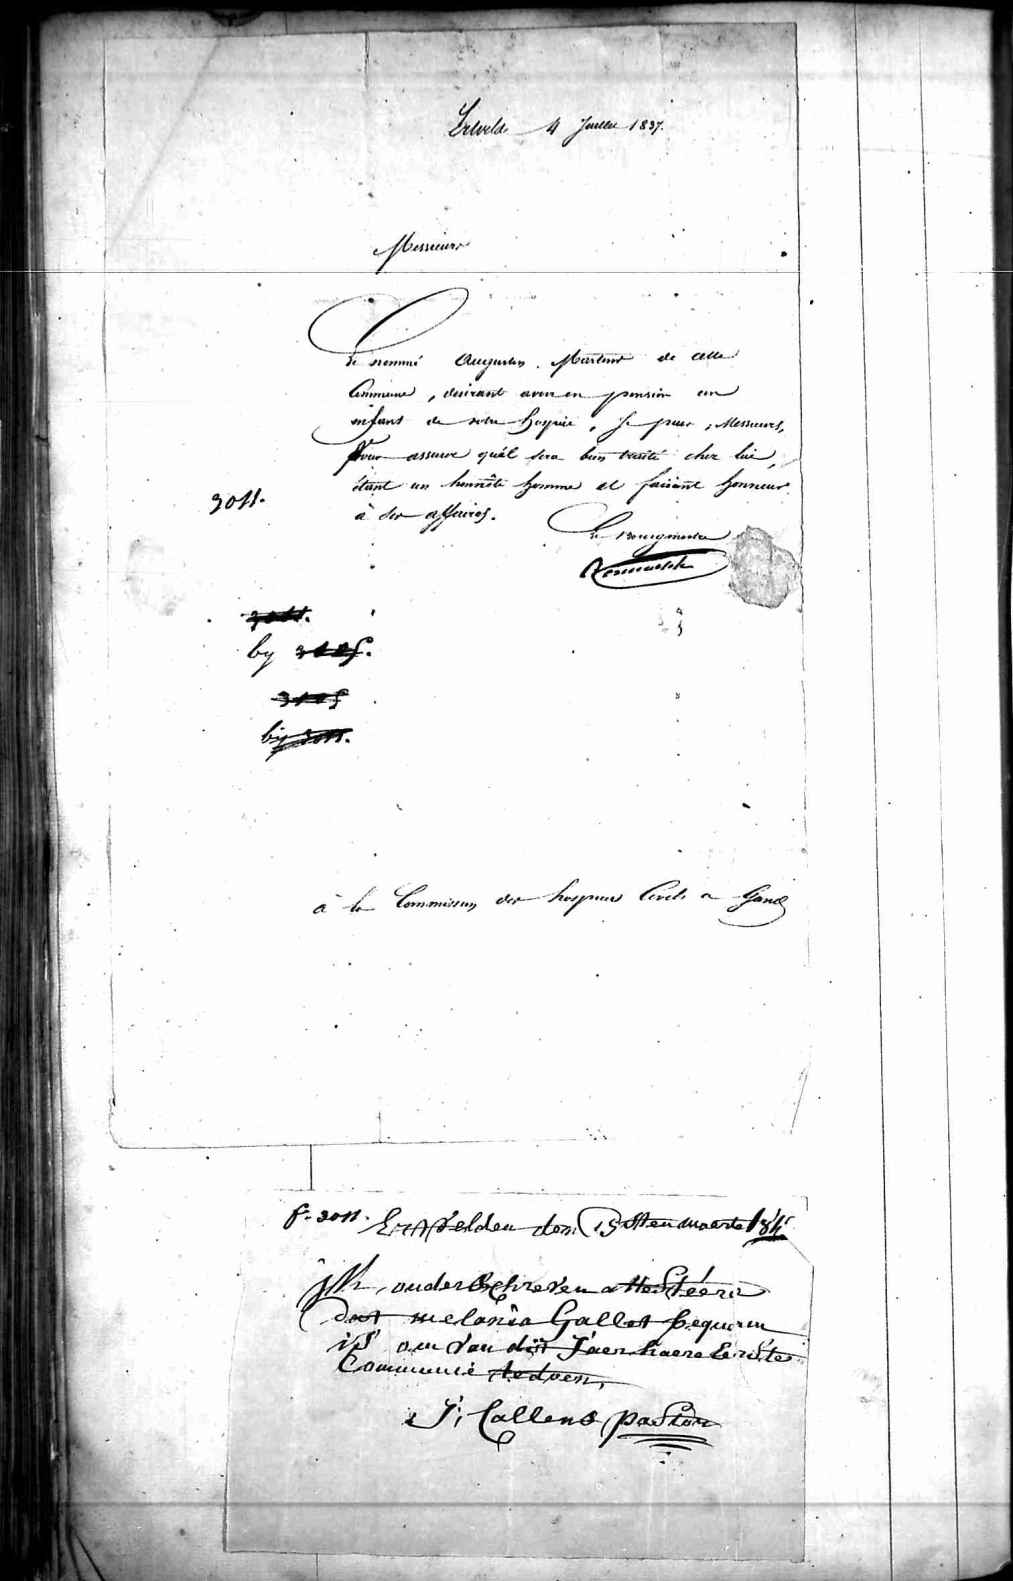 Ertvelde 4 Juillet 1837.
Messieurs
Le nommé Augustin Martens de cette
Commune, desirant avoir en pension un
enfant de votre hospice, Je puis, Messieurs,
Vous assurer qu'il sera bien traité chez lui,
étant un honnête homme et faisant honneur
3011.
à ses affaires.
Le Bourgmestre
3011.
by
by 3011.
à la Commission des hospices Civils a Gand
f. 3011.
Ertvelden den 15sten maerte
ik onderschreven attestéere
dat melania Gallet bequaem
is om van dit Jaer haere Eerste
Communie te doen,
J: Callens pastor